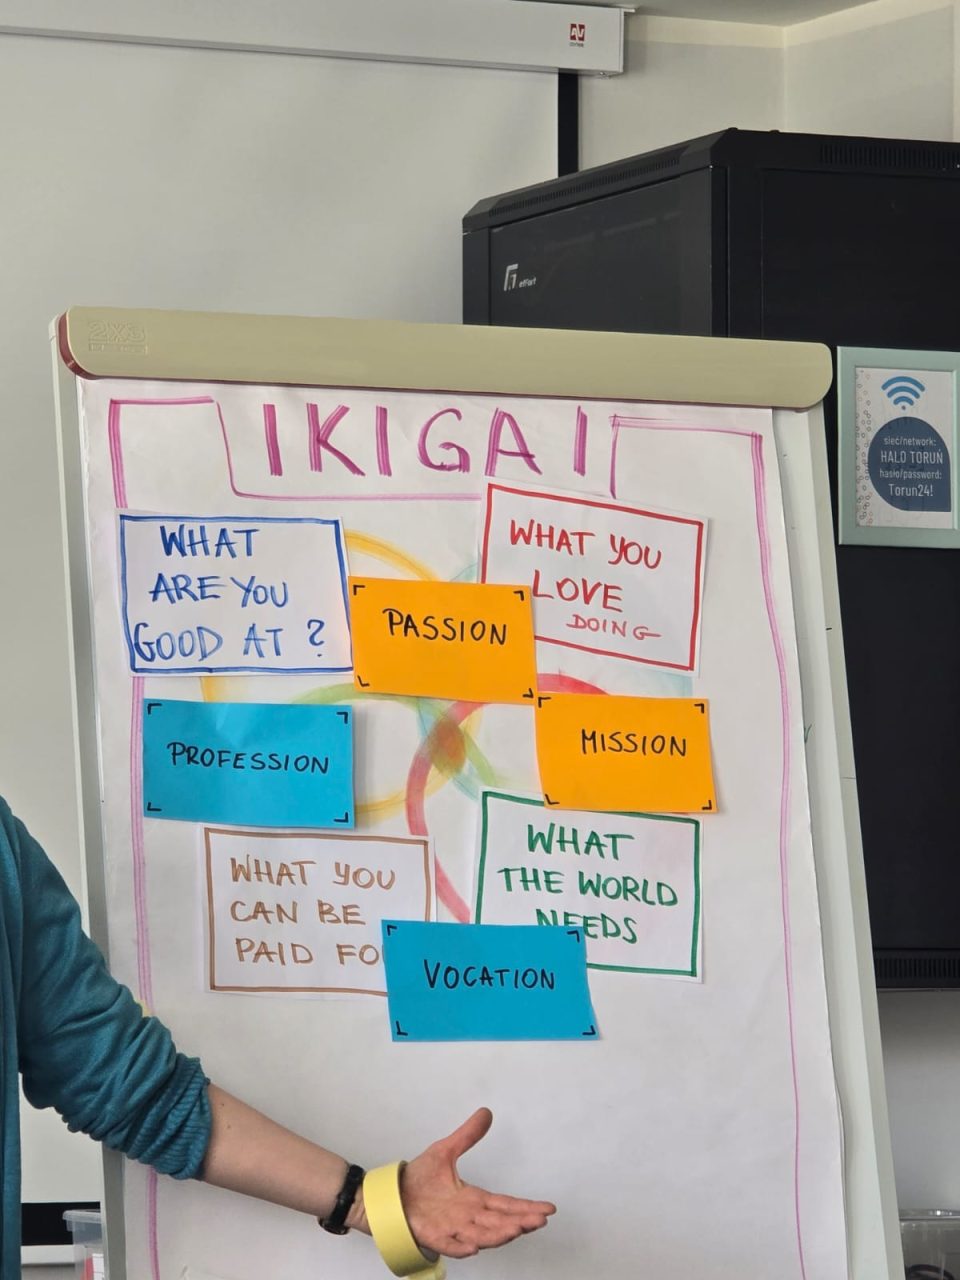 effort
2X3
sieć/network:
HALO TORUŃ
hasło/password:
Torun24!
IKIGAI
WHAT
ARE YOU
GOOD AT ?
WHAT YOU
LOVE
DOING
PASSION
PROFESSION
MISSION
WHAT YOU
CAN BE
PAID FO
WHAT
THE WORLD
NEEDS
VOCATION